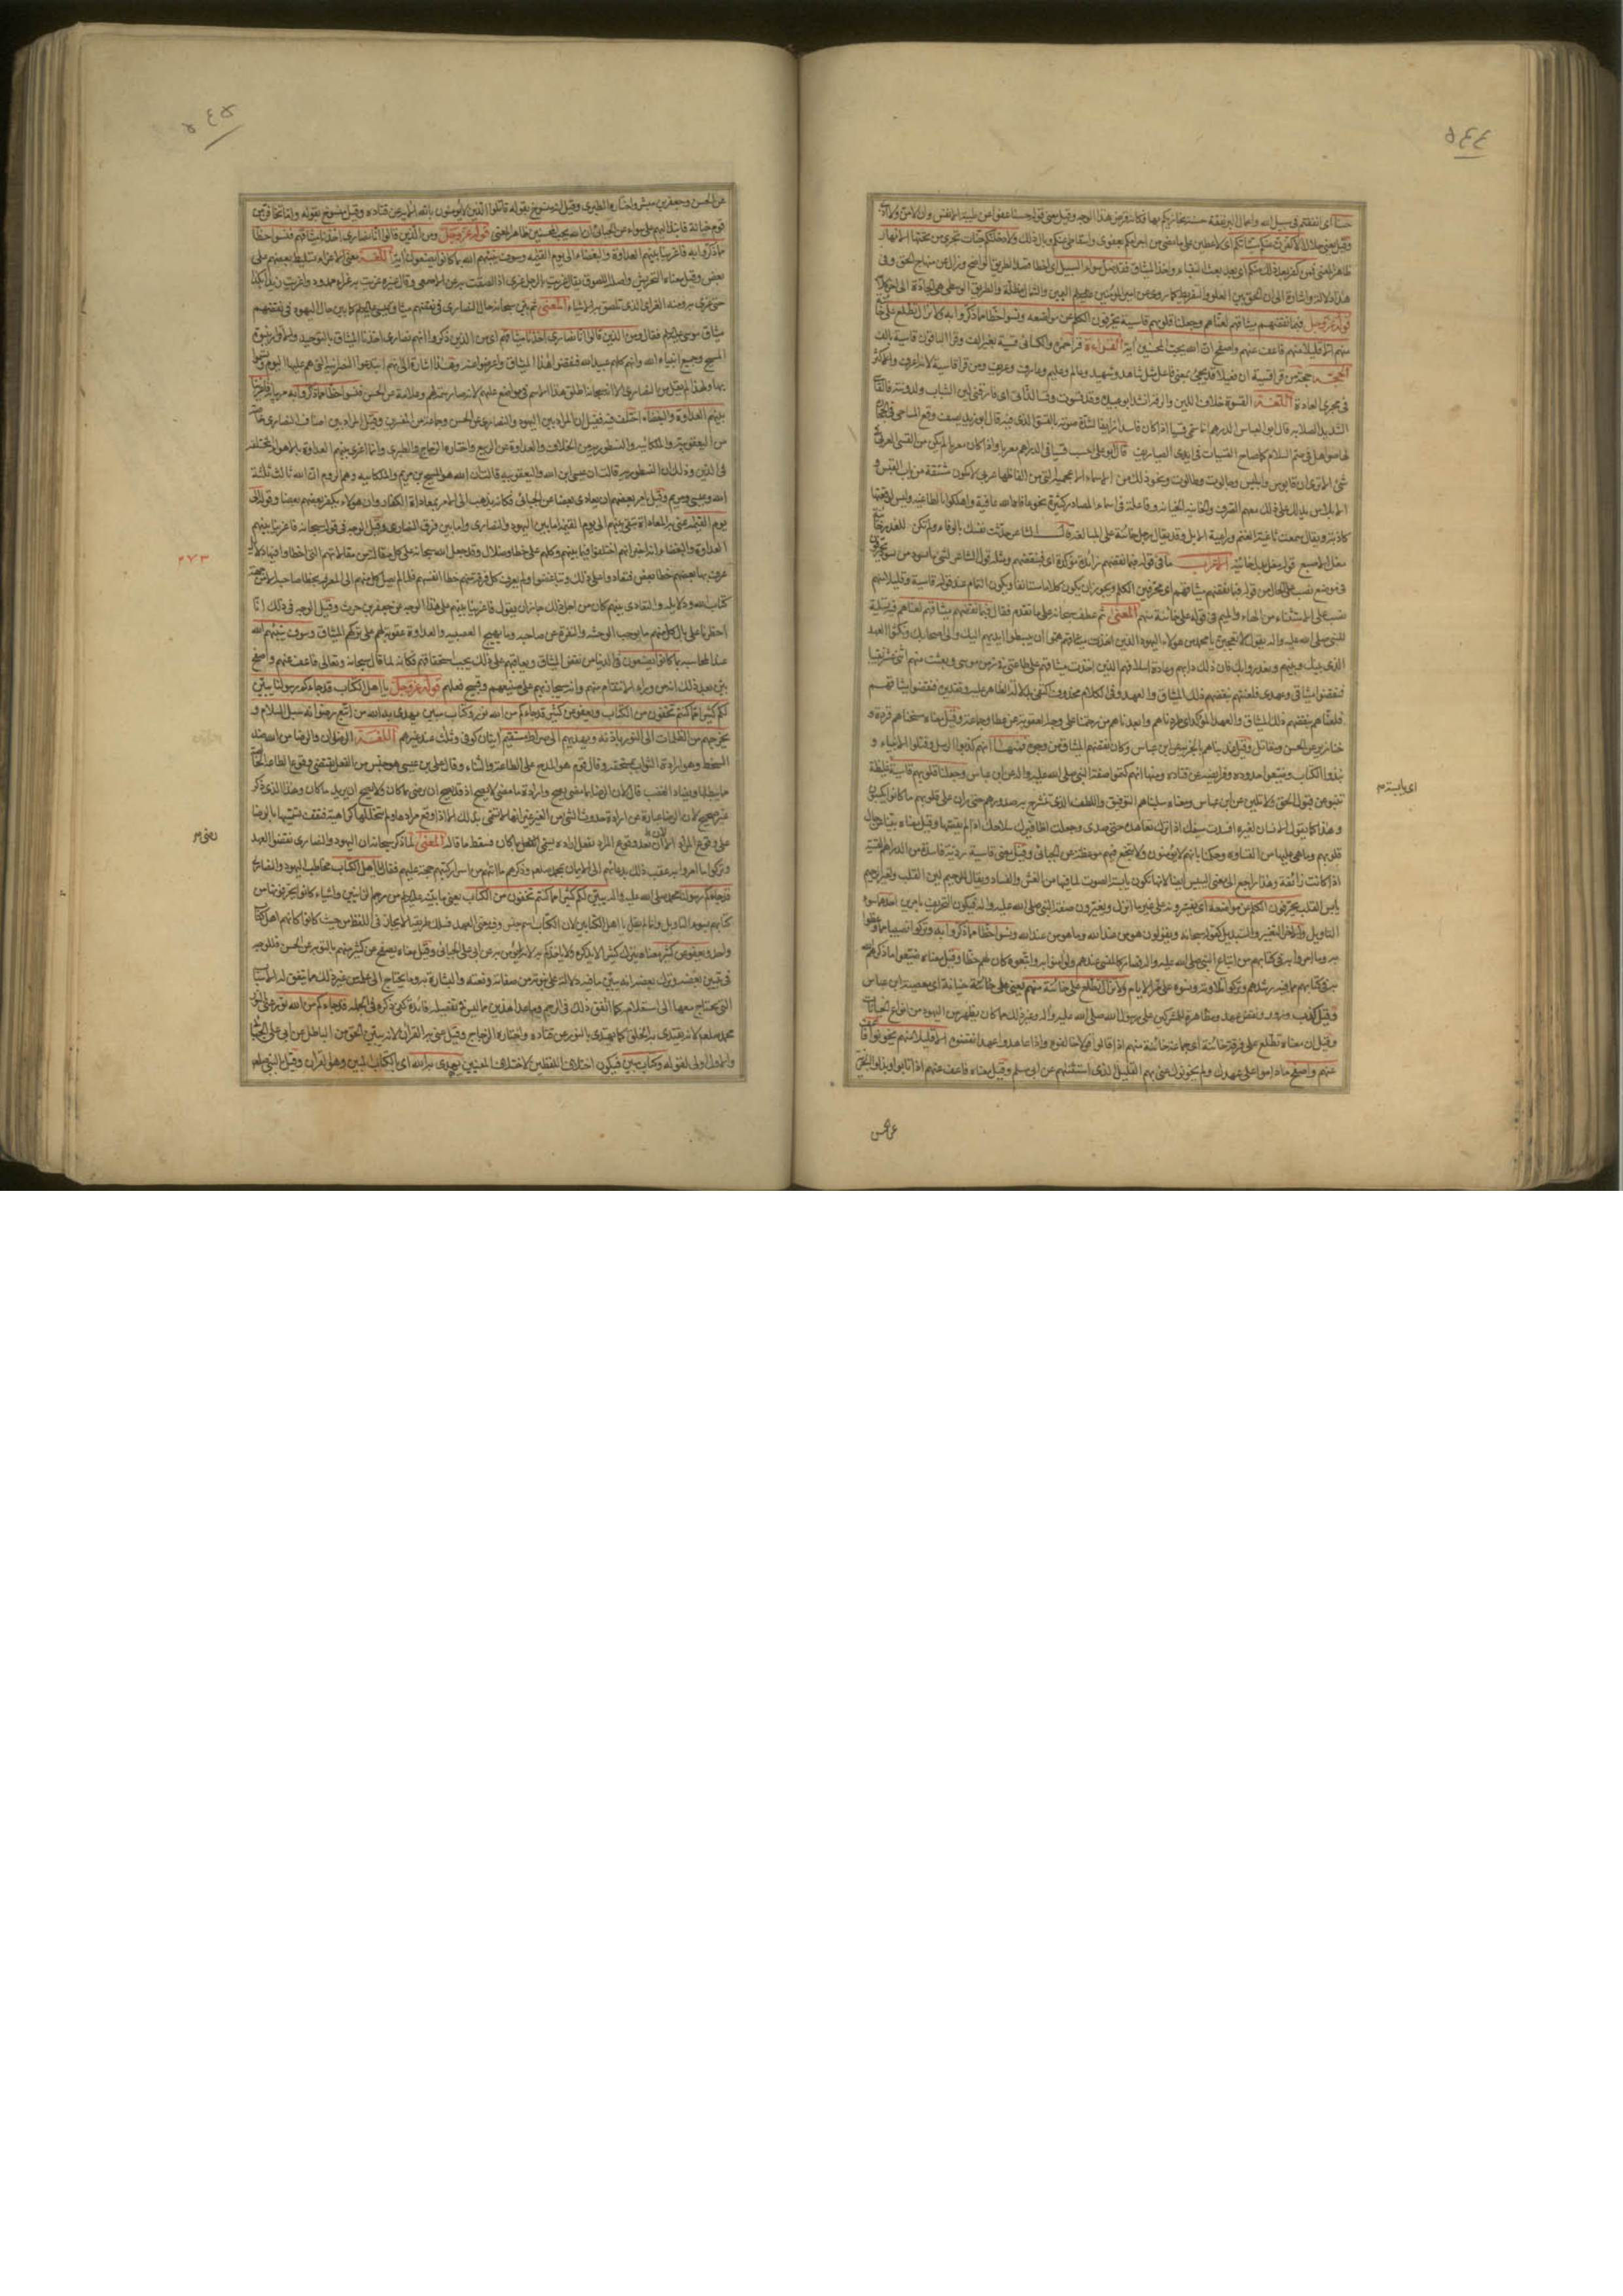 ٥٤٤
حسنا اى انفقتم فى سبيل الله واعمال البر نفقة حسنة يجازيكم بها فكانه قرض من هذا الوجه وقيل معنى قوله حسنا عفوا عن طيبة النفس وان لا
وقيل يعنى حلالا لاكفرن عنكم سيئاتكم اى لاغطين على ما مضى من اجرامكم بعفوى واسقاطى عنكم وبال ذلك ولادخلنكم جنات تجرى من تحتها الانهار
ظاهر المعنى فمن كفر بعد ذلك منكم اى بعد بعث النقباء واخذ الميثاق فقد ضل سواء السبيل اى اخطا قصد الطريق الواضح وزال عن منهاج الحق وفى
هذا دلالة واشارة الى ان الحق بين الغلو والتقصير كما روى عن امير المؤمنين عليه السلم اليمين والشمال مضلة والطريق الوسطى هى الجادة
قوله عز وجل فبما نقضهم ميثاقهم لعناهم وجعلنا قلوبهم قاسية يحرفون الكلم عن مواضعه ونسوا حظا مما ذكروا به ولا تزال تطلع على خا
منهم الا قليلا منهم فاعف عنهم واصفح ان الله يحب المحسنين اية القراءة قرا حمزة والكسائى قسية بغير الف وقرا الباقون قاسية بالالف
الحجة حجة من قرا قسية ان فعيلا قد يجئ بمعنى فاعل مثل شاهد وشهيد وعالم وعليم وعارف وعريف ومن قرا قاسية لانه اعرف واكثر
فى مجرى العادة اللغة القسوة خلاف اللين والرقة انشد ابو عبيدة وقد قسوت وقسا لداتى اى فارقنى لين الشباب ولدونته
الشديد الصلابة قال ابو العباس الدرهم انما سمى قسيا اذا كان فاسدا رديا لشدة صوته بالقسو الذى فيه قال ابو زبيد يصف وقع المساحى
لها صواهل فى صم السلام كما صاح القسيات فى ايدى الصياريف قال ابو على احسب قسيا فى الدراهم معربا واذا كان معربا لم يكن من القسى العربى
شئ الا ترى ان قابوس وابليس وجالوت وطالوت ونحو ذلك من الاسماء الاعجمية التى من الفاظها عربى لا يكون مشتقة من باب القبس و
الابلاس يدلك على ذلك منعهم الصرف والخائنة الخيانة وفاعلة فى اسماء المصادر كثيرة نحو عافاه الله عافية واهلكوا بالطاغية وليس لوقعتها
كاذبة ويقال سمعت ثاغية الغنم وراغية الابل وقد يقال رجل خائنة على المبالغة قال الشاعر حدثت نفسك بالوفاء ولم تكن للغدر خائنة
مغل الاصبع الاعراب ما فى قوله فبما نقضهم زائدة مؤكدة اى فبنقضهم ومثله قول الشاعر لشئ ما يسود من يسود يحرفون
فى موضع نصب على الحال من قوله فبما نقضهم ميثاقهم اى محرفين الكلم ويجوز ان يكون كلاما مستانفا ويكون التمام عند قوله قاسية وقليلا منهم
نصب على الاستثناء من الهاء والميم فى قوله على خائنة منهم المعنى ثم عطف سبحانه على ما تقدم فقال فبما نقضهم ميثاقهم لعناهم فيه تسلية
للنبى صلى الله عليه واله يقول لا تعجبن يا محمد من هؤلاء اليهود الذين اخذت ميثاقهم هموا ان يبسطوا ايديهم اليك والى اصحابك ونكثوا العهد
الذى بينك وبينهم وغدروا بك فان ذلك دابهم وعادة اسلافهم الذين اخذت ميثاقهم على طاعتى فى زمن موسى وبعثت منهم اثنى عشر نقيبا
فنقضوا ميثاقى وعهدى فلعنتهم بنقضهم ذلك الميثاق والعهد وفى الكلام محذوف اكتفى بدلالة الظاهر عليه وتقديره فنقضوا ميثاقهم
فلعناهم بنقضهم ذلك الميثاق والعهد المؤكد اى طردناهم وابعدناهم من رحمتنا على وجه العقوبة عن عطا وجماعة وقيل معناه مسخناهم قردة و
خنازير عن الحسن ومقاتل وقيل عذبناهم بالجزية عن ابن عباس وكان نقضهم الميثاق من وجوه منها انهم كذبوا الرسل وقتلوا الانبياء و
نبذوا الكتاب وضيعوا حدوده وفرايضه عن قتاده ومنها انهم كتموا صفة النبى صلى الله عليه واله عن ابن عباس وجعلنا قلوبهم قاسية غليظة
تنبو عن قبول الحق ولا تلين عن ابن عباس ومعناه سلبناهم التوفيق واللطف الذى تنشرح به صدورهم حتى ران على قلوبهم ما كانوا يكسبون
وهذا كما يقول الانسان لغيره افسدت سيفك اذا ترك تعاهده حتى صدى وجعلت اظافيرك سلاحك اذا لم يقصها وقيل معناه بينا حال
قلوبهم وما هى عليها من القساوة وحكمنا بانهم لا يؤمنون ولا ينجع فيهم موعظة عن الجبائى وقيل معنى قاسية ردية فاسدة من الدراهم القسية
اذا كانت زائفة وهذا راجع الى معنى اليبس ايضا لانها تكون يابسة الصوت لما فيها من الغش والفساد ويقال للرحيم لين القلب ولغير الرحيم
يابس القلب يحرفون الكلم عن مواضعه اى يفسرونه على غير ما انزل ويغيرون صفة النبى صلى الله عليه واله فيكون التحريف بامرين احدهما سوء
التاويل والاخر التغيير والتبديل كقوله سبحانه ويقولون هو من عند الله وما هو من عند الله ونسوا حظا مما ذكروا به وتركوا نصيبا مما وعظوا
به ومما امروا به فى كتابهم من اتباع النبى صلى الله عليه واله فصار كالمنسى عندهم ولو امنوا به واتبعوه لكان لهم حظا وقيل معناه ضيعوا ما ذكرهم الله
به فى كتابهم مما فيه رشدهم وتركوا تلاوته ونسوه على مر الايام ولا تزال تطلع على خائنة منهم يعنى على خيانة اى معصية عن ابن عباس
وقيل كذب وزور ونقض عهد ومظاهرة للمشركين على رسول الله صلى الله عليه واله وغير ذلك مما كان يظهر من اليهود من انواع الخيانات
وقيل ان معناه تطلع على فرقة خائنة اى جماعة خائنة منهم اذا قالوا قولا خالفوه واذا عاهدوا عهدا نقضوه الا قليلا منهم لم يخونوا فاعف
عنهم واصفح ما داموا على عهدك ولم يخونوك عنى بهم القليل الذى استثنيهم عن ابى مسلم وقيل معناه فاعف عنهم اذا تابوا وبذلوا الجزية
اى يابسة م
عن الحسن
٥٤٥
عن الحسن وجعفر بن مبشر واختاره الطبرى وقيل انه منسوخ بقوله قاتلوا الذين لا يؤمنون بالله الاية عن قتاده وقيل منسوخ بقوله واما تخافن من
قوم خيانة فانبذ اليهم على سواء عن الجبائى ان الله يحب المحسنين ظاهر المعنى قوله عز وجل ومن الذين قالوا انا نصارى اخذنا ميثاقهم فنسوا حظا
مما ذكروا به فاغرينا بينهم العداوة والبغضاء الى يوم القيمة وسوف ينبئهم الله بما كانوا يصنعون اية اللغة معنى الاغراء تسليط بعضهم على
بعض وقيل معناه التحريش واصله اللصوق يقال غريت بالرجل غرى اذا لصقت به عن الاصمعى وقال غيره غريت به غراء ممدود واغريت زيدا بكذا
حتى غرى به ومنه الغراء الذى تلصق به الاشياء المعنى ثم بين سبحانه حال النصارى فى نقضهم ميثاق عيسى عليه السلم كما بين حال اليهود فى نقضهم
ميثاق موسى عليه السلم فقال ومن الذين قالوا انا نصارى اخذنا ميثاقهم اى من الذين ذكروا انهم نصارى اخذنا الميثاق بالتوحيد والاقرار بنبوة
المسيح وجميع انبياء الله وانهم كلهم عبيد الله فنقضوا هذا الميثاق واعرضوا عنه وهذا اشارة الى انهم ابتدعوا النصرانية التى هم عليها اليوم وتسموا
بها ولهذا لم يقل من النصارى الا انه سبحانه اطلق هذا الاسم فى مواضع عليهم لانه صار سمة لهم وعلامة عن الحسن فنسوا حظا مما ذكروا به مر بيانه فاغرينا
بينهم العداوة والبغضاء اختلف فيه فقيل ان المراد بين اليهود والنصارى عن الحسن وجماعة من المفسرين وقيل المراد بين اصناف النصارى خاصة
من اليعقوبية والملكانيه والنسطوريه من الخلاف والعداوة عن الربيع واختاره الزجاج والطبرى وانما اغرى بينهم العداوة بالاهواء المختلفه
فى الدين وذلك ان النسطوريه قالت ان عيسى ابن الله واليعقوبيه قالت ان الله هو المسيح بن مريم والملكانيه وهم الروم ان الله ثالث ثلثة
الله وعيسى ومريم وقيل يامر بعضهم ان يعادى بعضا عن الجبائى فكانه يذهب الى الامر بمعاداة الكفار وان هؤلاء يكفر بعضهم بعضا وقوله الى
يوم القيمة عنى به المعاداة تبقى بينهم الى يوم القيمة اما بين اليهود والنصارى واما بين فرق النصارى وقيل الوجه فى قوله سبحانه فاغرينا بينهم
العداوة والبغضاء انه اخبر انهم اختلفوا فيما بينهم وكلهم على خطا وضلال وقد جعل الله سبحانه على كل مقالة من مقالاتهم التى اخطاوا فيها دلائل
عرف بها بعضهم خطا بعض فتعادوا على ذلك وتباغضوا ولم يعرف كل فرقة منهم خطا انفسهم فلما لم يصل كل منهم الى المعرفه بخطا صاحبه الا من جهة
كتاب الله ودلايله والتعادى بينهم كان من اجل ذلك جاز ان يقول فاغرينا بينهم على هذا الوجه عن جعفر بن حرث وقيل الوجه فى ذلك انا
اخطرنا على بال كل منهم ما يوجب الوحشه والنفرة عن صاحبه وما يهيج العصبيه والعداوة عقوبة لهم على تركهم الميثاق وسوف ينبئهم الله
عند المحاسبه بما كانوا يصنعون فى الدنيا من نقض الميثاق ويعاقبهم على ذلك بحسب استحقاقهم فكانه لما قال سبحانه وتعالى فاعف عنهم واصفح
بين بعد ذلك انه من وراء الانتقام منهم وانه سيجازيهم على صنيعهم وقبيح فعلهم قوله عز وجل يا اهل الكتاب قد جاءكم رسولنا يبين
لكم كثيرا مما كنتم تخفون من الكتاب ويعفو عن كثير قد جاءكم من الله نور وكتاب مبين يهدى به الله من اتبع رضوانه سبل السلام و
يخرجهم من الظلمات الى النور باذنه ويهديهم الى صراط مستقيم ايتان كوفى وثلث عند غيرهم اللغة الرضوان والرضا من الله ضد
السخط وهو ارادة الثواب لمستحقه وقال قوم هو المدح على الطاعة والثناء وقال على بن عيسى هو جنس من الفعل يقتضى وقوع الطاعة الخالصة
مما يبطلها ويضاد الغضب قال لان الرضا بما مضى يصح وارادة ما مضى لا يصح اذ قد يصح ان يرضى بما كان ولا يصح ان يريد ما كان وهذا الذى ذكره
غير صحيح لان الرضا عبارة عن ارادة حدوث الشئ من الغير غير انها لا تسمى بذلك الا اذا وقع مرادها ولم تتخللها كراهية فتقف تسميتها بالرضا
على وقوع المراد الا ان بعد وقوع المراد تفعل ارادة يسمى رضا لما كان فسقط ما قاله المعنى لما ذكر سبحانه ان اليهود والنصارى نقضوا العهد
وتركوا ما امروا به عقب ذلك بدعائهم الى الايمان بمحمد صلعم وذكرهم ما اتاهم به من اسرار كتبهم حجة عليهم فقال يا اهل الكتاب مخاطب اليهود والنصارى
قد جاءكم رسولنا محمد صلى الله عليه واله يبين لكم كثيرا مما كنتم تخفون من الكتاب يعنى ما بينه عليه السلم من رجم الزانيين واشياء كانوا يحرفونها من
كتابهم بسوء التاويل وانما لم يقل يا اهل الكتابين لان الكتاب اسم جنس وفيه معنى العهد فسلك طريقة الايجاز فى اللفظ من حيث كانوا كانهم اهل كتاب
واحد ويعفو عن كثير معناه يترك كثيرا لا يذكره ولا ياخذكم به لانه لم يؤمر به عن ابى على الجبائى وقيل معناه يصفح عن كثير منهم بالتوبه عن الحسن فالوجه
فى تبيين بعضه وترك بعضه انه يبين ما فيه دلالة على نبوته من صفاته ونعته والبشارة به وما يحتاج الى علمه من غير ذلك مما يتفق له الاسباب
التى يحتاج معها الى استعلام كما اتفق ذلك فى الرجم وما عدا هذين مما ليس فى تفصيله فائدة كفى ذكره فى الجملة قد جاءكم من الله نور يعنى بالنور
محمد صلعم لانه يهتدى به الخلق كما يهتدى بالنور عن قتاده واختاره الزجاج وقيل عنى به القران لانه يبين الحق من الباطل عن ابى على الجبائى
والاول اولى لقوله وكتاب مبين فيكون اختلاف اللفظين لاختلاف المعنيين يهدى به الله اى بالكتاب المبين وهو القران وقيل بالنبى صلعم
٢٧٣